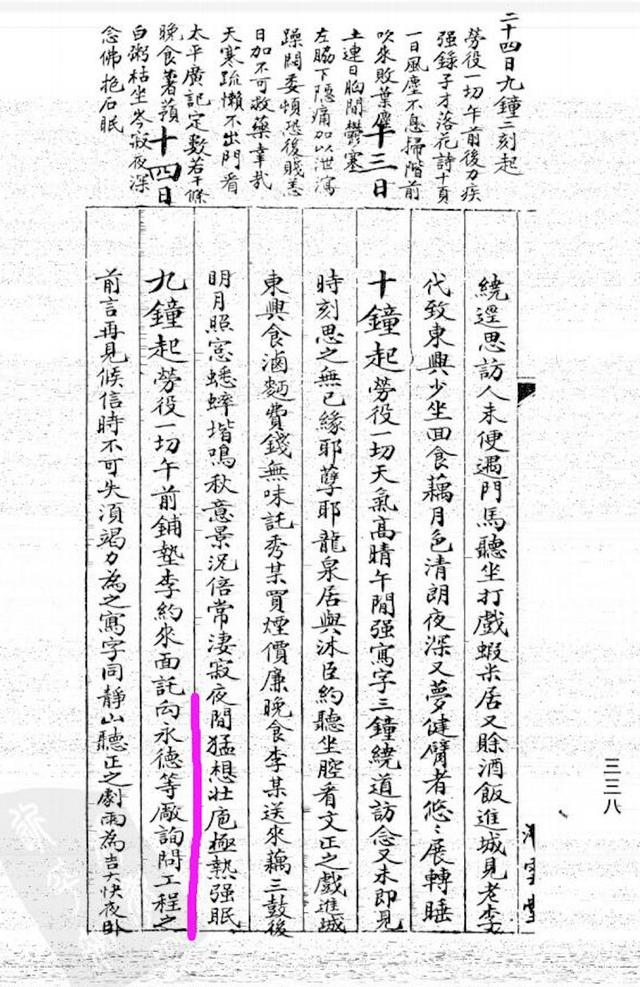 二十四日九鐘三刻起
勞役一切午前後力疾
強錄子才落花詩十頁
一日風塵不息掃階前
吹來敗葉塵
土連日胸間鬱塞
左脇下隱痛加以泄瀉
委頓恐後賤恙
日加不可救藥哉
天寒疏懶不出門看
太平廣記定數若干條
晚食著蕷
白粥枯坐岑寂夜深
念佛抱石眠
繞邊思訪人未便過門馬聽坐打戲蝦米居又賒酒飯進城見老李
代致東興少坐面食藕月色清朗夜深又夢健臂者悠々展轉睡
十三日十鐘起勞役一切天氣高晴午間强寫字三鐘繞道訪念又未即見
時刻思之無已緣耶孽耶龍泉居與沐臣約聽坐腔看文正之戲進城
東興食滷麵費錢無味託秀某買煙價廉晚食李某送來藕三鼓後
明月照窓蟋蟀堦鳴秋意景況倍常淒寂夜間猛想壯庖極熱强眠
十四日九鐘起勞役一切午前鋪墊李約來面託向永德等廠詢問工程之
前言再見候信時不可失須竭力為之寫字同靜山聽正之劇雨為吉大快夜卧
三三八